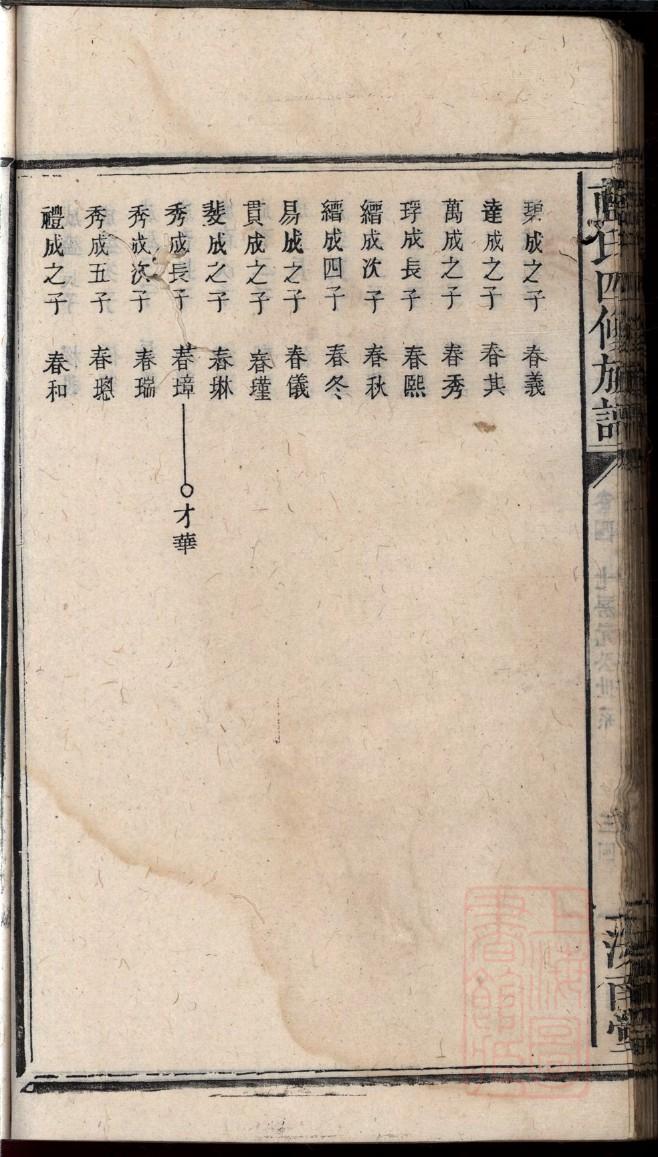 碧成之子 春義
達成之子 春其
萬成之子 春秀
琈成長子 春熙
縉成次子 春秋
縉成四子 春冬
易成之子 春儀
貫成之子 春瑾
斐成之子 春琳
秀成長子 春璋 才華
秀成次子 春瑞
秀成五子 春璁
禮成之子 春和
氏四修族譜
上海圖書館藏